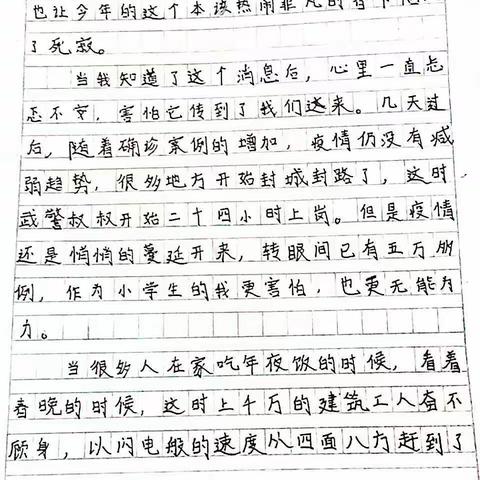 也让今年的这个本该热闹非凡的春节陷
了死寂。
当我知道了这个消息后，心里一直忐
忑不安，害怕它传到了我们这来。几天过
后，随着确诊案例的增加，疫情仍没有减
弱趋势，很多地方开始封城封路了，这时
武警叔叔开始二十四小时上岗。但是疫情
还是悄悄的蔓延开来，转眼间已有五万多
例，作为小学生的我更害怕，也更无能为
力。
当很多人在家吃年夜饭的时候，看着
春晚的时候，这时上千万的建筑工人奋不
顾身，以闪电般的速度从四面八方赶到了